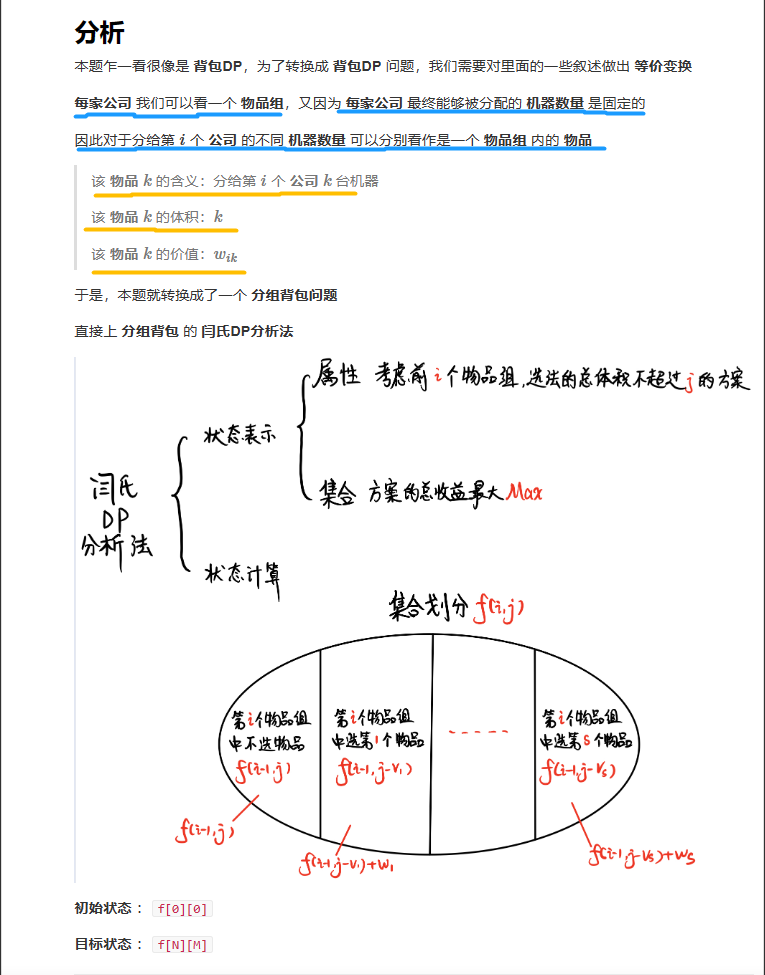 分析
本题乍一看很像是 背包DP，为了转换成 背包DP 问题，我们需要对里面的一些叙述做出 等价变换
每家公司 我们可以看一个 物品组，又因为 每家公司 最终能够被分配的 机器数量 是固定的
因此对于分给第 i 个 公司 的不同 机器数量 可以分别看作是一个 物品组 内的 物品
该 物品 k 的含义：分给第 i 个 公司 k 台机器
该 物品 k 的体积：k
该 物品 k 的价值：w_{ik}
于是，本题就转换成了一个 分组背包问题
直接上 分组背包 的 闫氏DP分析法
属性 考虑前i个物品组,选法的总体积不超过j的方案
状态表示
集合 方案的总收益最大Max
闫氏
DP
分析法
状态计算
集合划分 f(i,j)
第i个物品组
中不选物品
f(i-1,j)
第i个物品组
中选第1个物品
f(i-1,j-v₁)
- - - - -
第i个物品组
中选第S个物品
f(i-1,j-vₛ)
f(i-1,j)
f(i-1,j-v₁)+w₁
f(i-1,j-vₛ)+wₛ
初始状态： f[0][0]
目标状态： f[N][M]